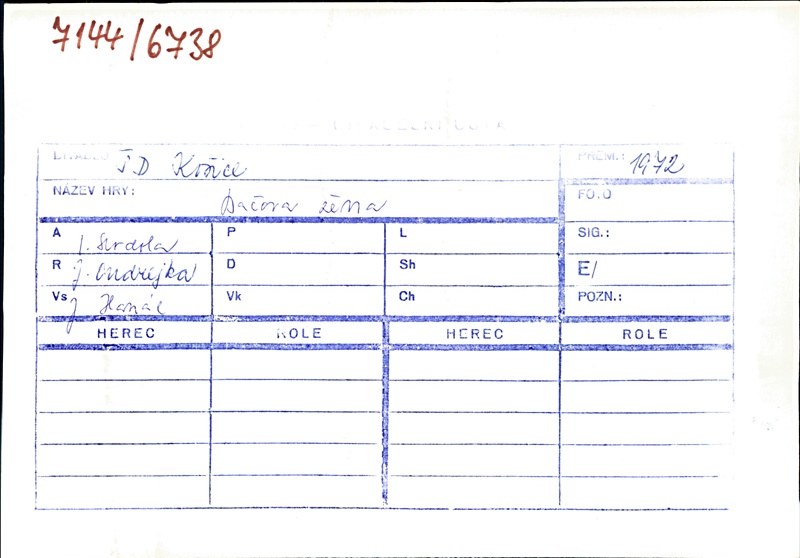 7144/6738
DIVADLO ŠD Košice PREM.: 1972
NÁZEV HRY: Bačova žena FO.O
A I. Stodola P L SIG.:
R J. Ondrejka D Sh E/
Vs J Hanák Vk Ch POZN.:
HEREC ROLE HEREC ROLE